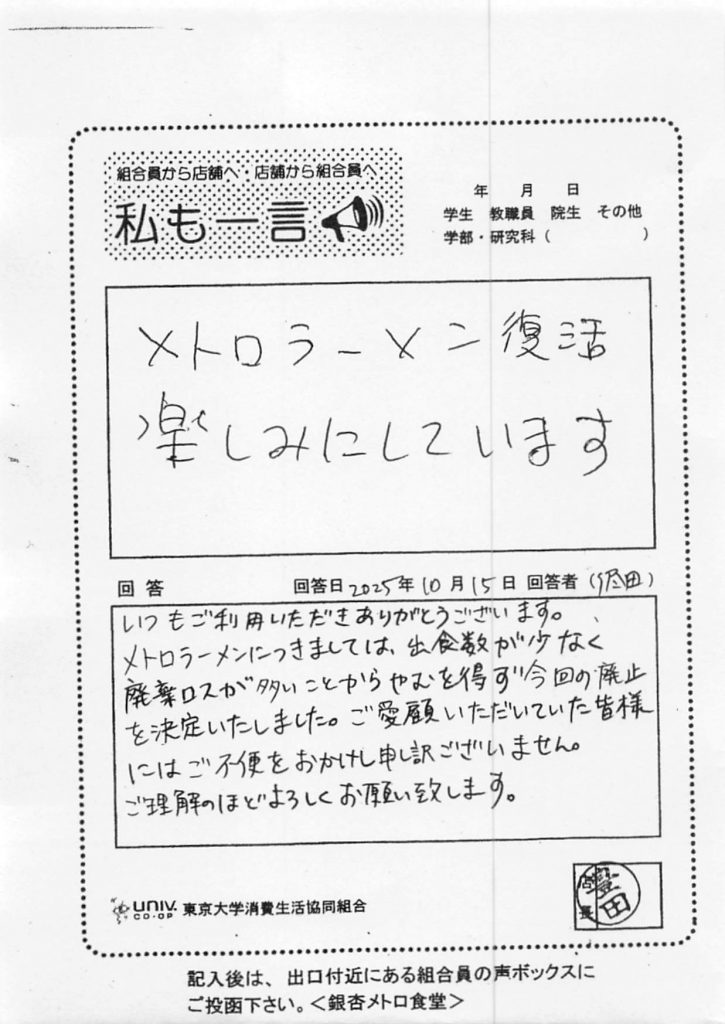 組合員から店舗へ・店舗から組合員へ
私も一言
年 月 日
学生 教職員 院生 その他
学部・研究科（ ）
メトロラーメン復活
楽しみにしています
回答 回答日 2025年10月15日 回答者（沼田）
いつもご利用いただきありがとうございます。
メトロラーメンにつきましては、出食数が少なく
廃棄ロスが多いことからやむを得ず今回の廃止
を決定いたしました。ご愛顧いただいていた皆様
にはご不便をおかけし申し訳ございません。
ご理解のほどよろしくお願い致します。
店長
豊田
UNIV. CO-OP 東京大学消費生活協同組合
記入後は、出口付近にある組合員の声ボックスに
ご投函下さい。＜銀杏メトロ食堂＞